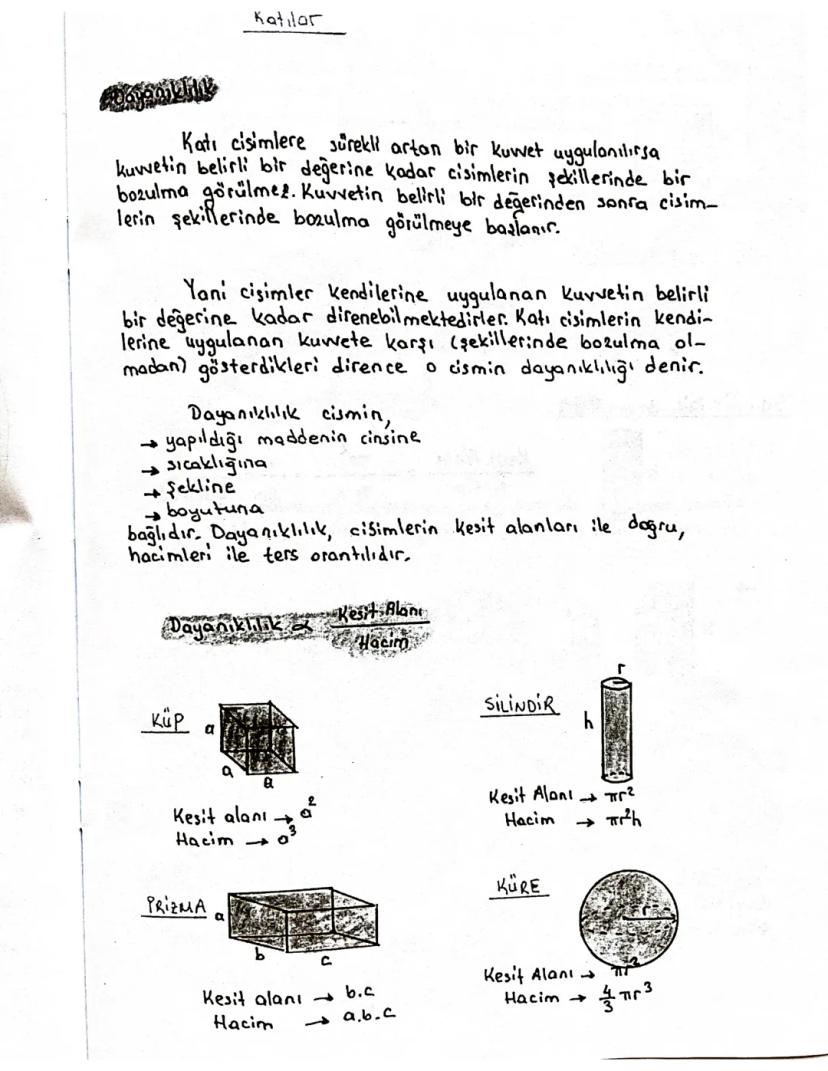 Katılar
Dayanıklılık
Katı cisimlere sürekli artan bir kuvvet uygulanılırsa
kuvvetin belirli bir değerine kadar cisimlerin şekillerinde bir
bozulma görülmez. Kuvvetin belirli bir değerinden sonra cisim-
lerin şekillerinde bozulma görülmeye başlanır.
Yani cisimler kendilerine uygulanan kuvvetin belirli
bir değerine kadar direnebilmektedirler. Katı cisimlerin kendi-
lerine uygulanan kuvvete karşı (şekillerinde bozulma ol-
madan) gösterdikleri dirence o cismin dayanıklılığı denir.
Dayanıklılık cismin,
→ yapıldığı maddenin cinsine
→ sıcaklığına
→ şekline
→ boyutuna
bağlıdır. Dayanıklılık, cisimlerin kesit alanları ile doğru,
hacimleri ile ters orantılıdır.
Dayanıklılık α Kesit Alanı
Hacim
KÜP
a
a
a
Kesit alanı → a²
Hacim → a³
SİLİNDİR
r
h
Kesit Alanı → πr²
Hacim → πr²h
PRİZMA
a
b
c
Kesit alanı → b.c
Hacim → a.b.c
KÜRE
r
Kesit Alanı → πr²
Hacim → 4/3 πr³